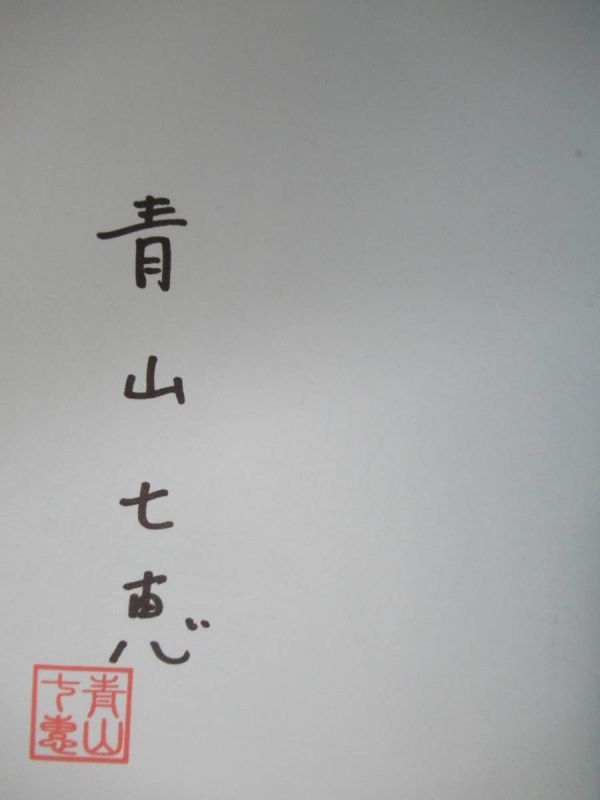 青山七恵
青山
七恵